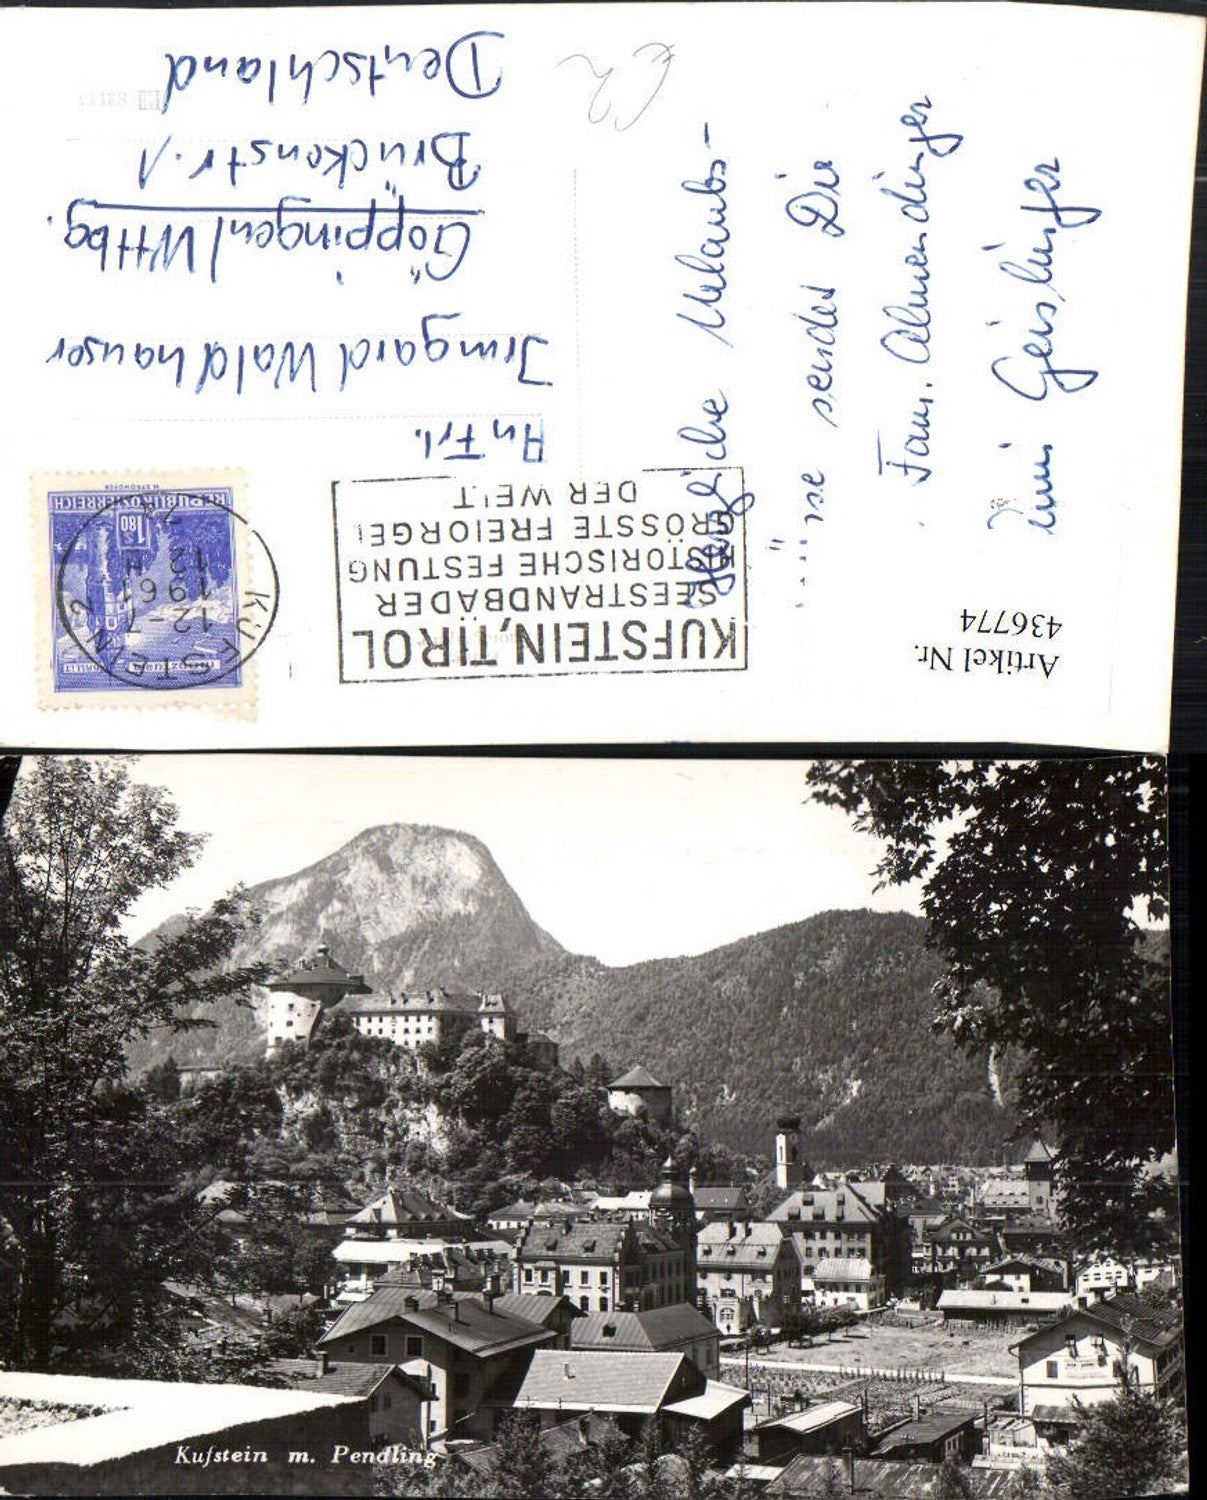 Herzliche Urlaubs-
grüsse sendet Dir
Fam. Almendinger
Geislinger
Artikel Nr.
436774
KUFSTEIN, TIROL
SEESTRANDBÄDER
HISTORISCHE FESTUNG
GRÖSSTE FREIORGEL
DER WELT
KUFSTEIN 2
12-7
1961
12
REPUBLIK ÖSTERREICH
180
An Frl.
Irmgard Waldhauser
Göppingen/Wttbg.
Brückenstr. 1
Deutschland
Kufstein m. Pendling